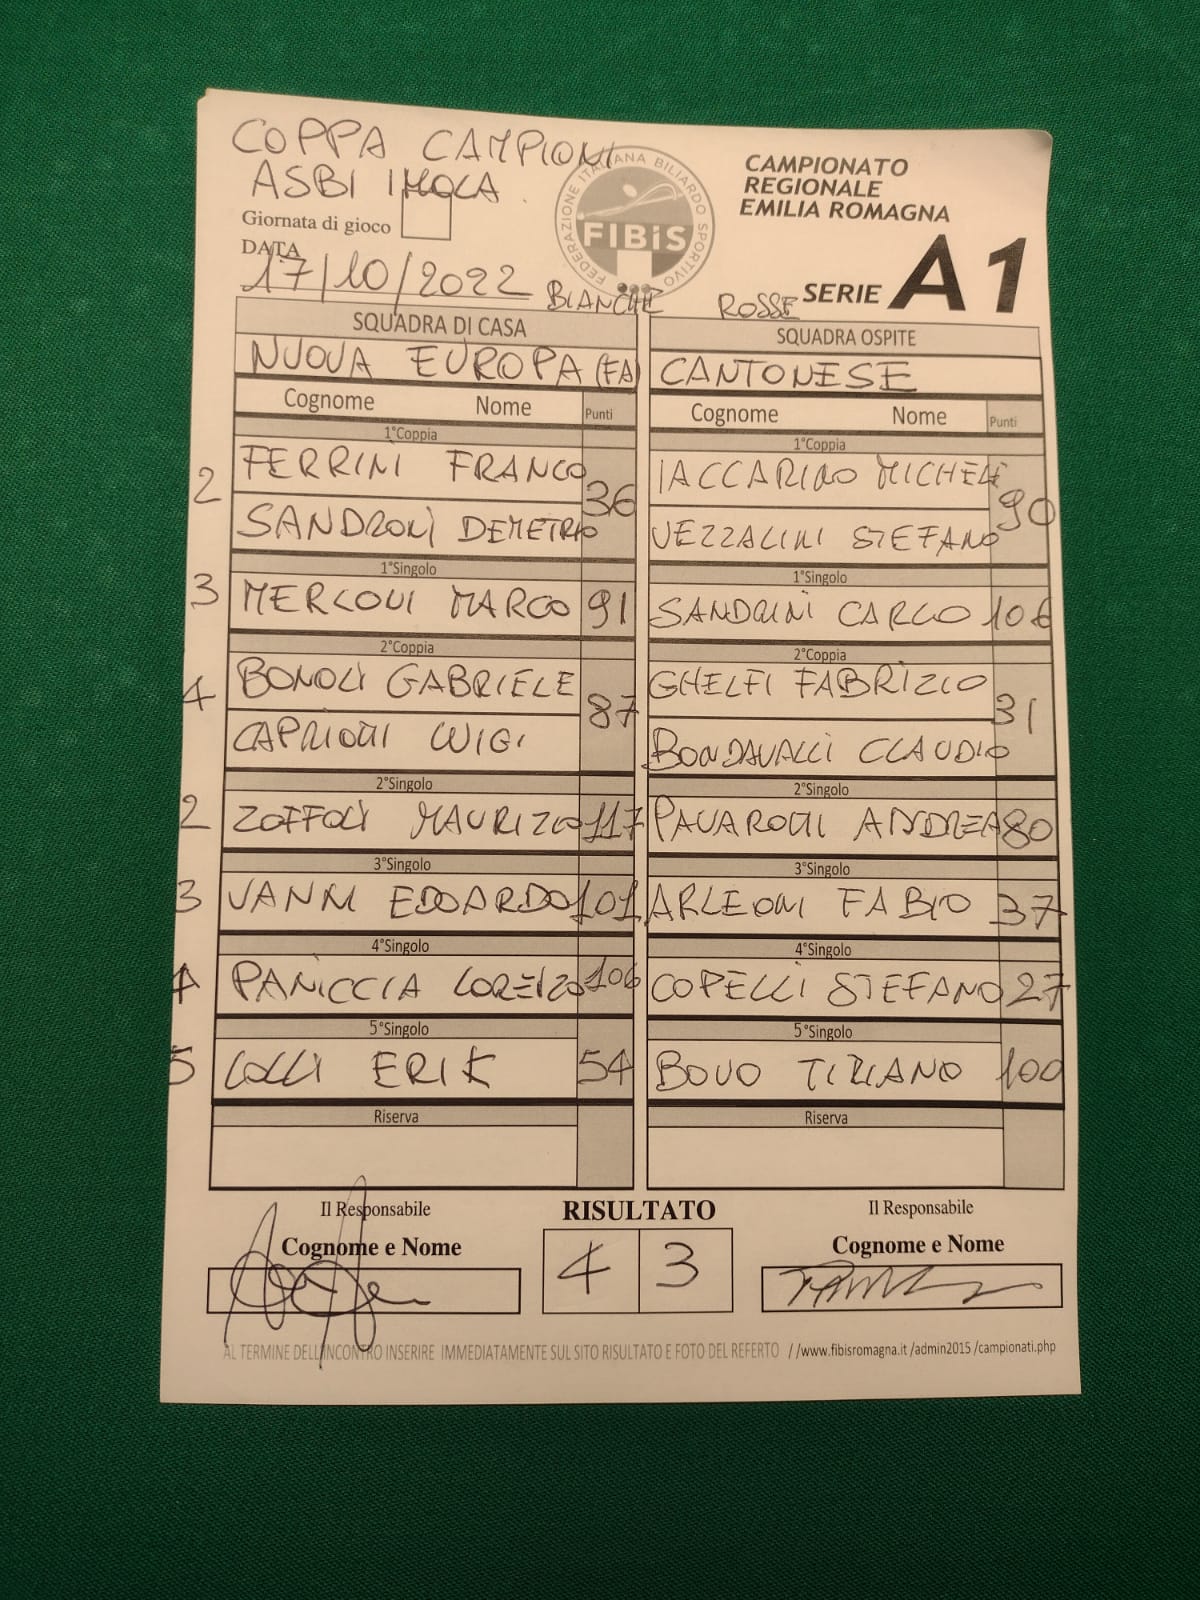 COPPA CAMPIONI
ASBI IMOLA
Giornata di gioco
DATA
17/10/2022
FEDERAZIONE ITALIANA BILIARDO SPORTIVO
FIBiS
CAMPIONATO
REGIONALE
EMILIA ROMAGNA
SERIE A1
BIANCHE ROSSE
SQUADRA DI CASA
NUOVA EUROPA (FA)
Cognome Nome Punti
1°Coppia
2 FERRINI FRANCO 36
SANDRONI DEMETRIO
1°Singolo
3 MERLONI MARCO 91
2°Coppia
4 BONOLI GABRIELE 87
CAPRIOTTI LUIGI
2°Singolo
2 ZOFFOLI MAURIZIO 117
3°Singolo
3 VANNI EDOARDO 101
4°Singolo
4 PANICCIA LORENZO 106
5°Singolo
5 LOLLI ERIK 54
Riserva
SQUADRA OSPITE
CANTONESE
Cognome Nome Punti
1°Coppia
IACCARINO MICHELE 90
VEZZALINI STEFANO
1°Singolo
SANDRINI CARLO 106
2°Coppia
GHELFI FABRIZIO 31
BONDAVALLI CLAUDIO
2°Singolo
PAVAROTTI ANDREA 80
3°Singolo
ARLEONI FABIO 37
4°Singolo
COPELLI STEFANO 27
5°Singolo
BOVO TIZIANO 100
Riserva
Il Responsabile
Cognome e Nome
RISULTATO
4 3
Il Responsabile
Cognome e Nome
AL TERMINE DELL'INCONTRO INSERIRE IMMEDIATAMENTE SUL SITO RISULTATO E FOTO DEL REFERTO //www.fibisromagna.it /admin2015 /campionati.php